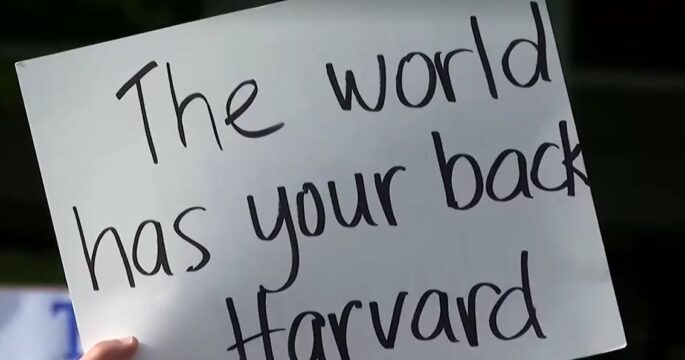 The world
has your back
Harvard